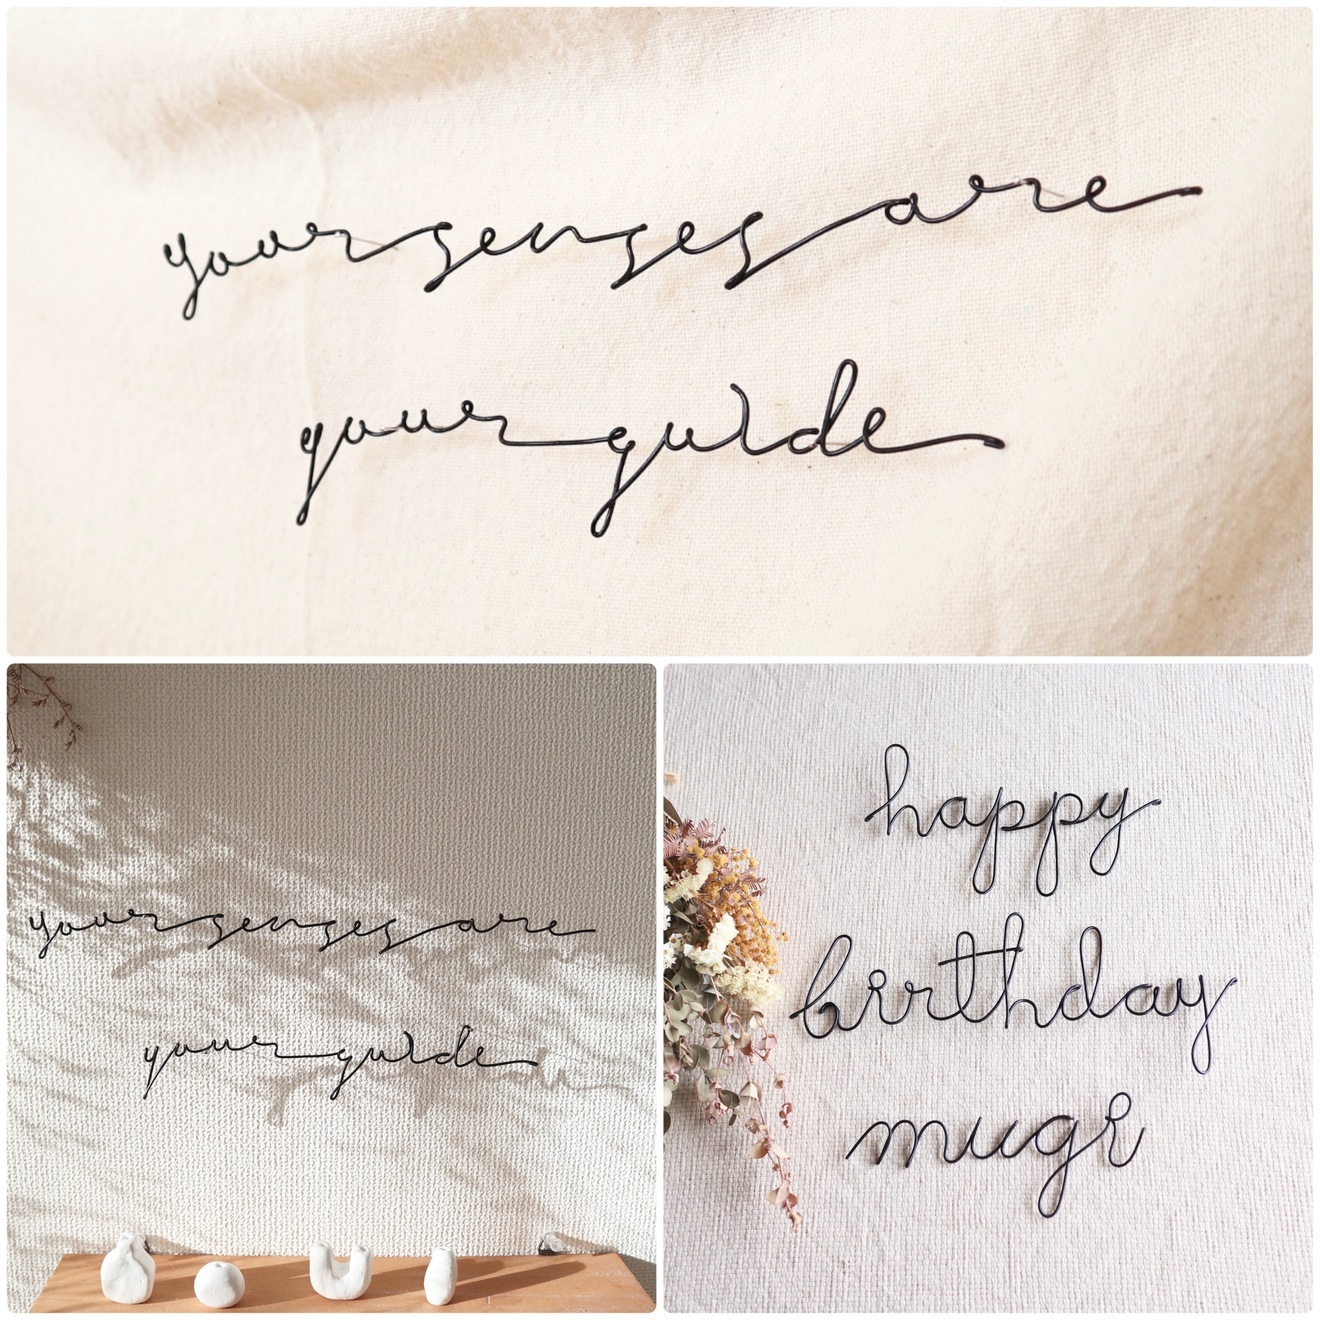 your senses are
your guide
your senses are
your guide
happy
birthday
mugi